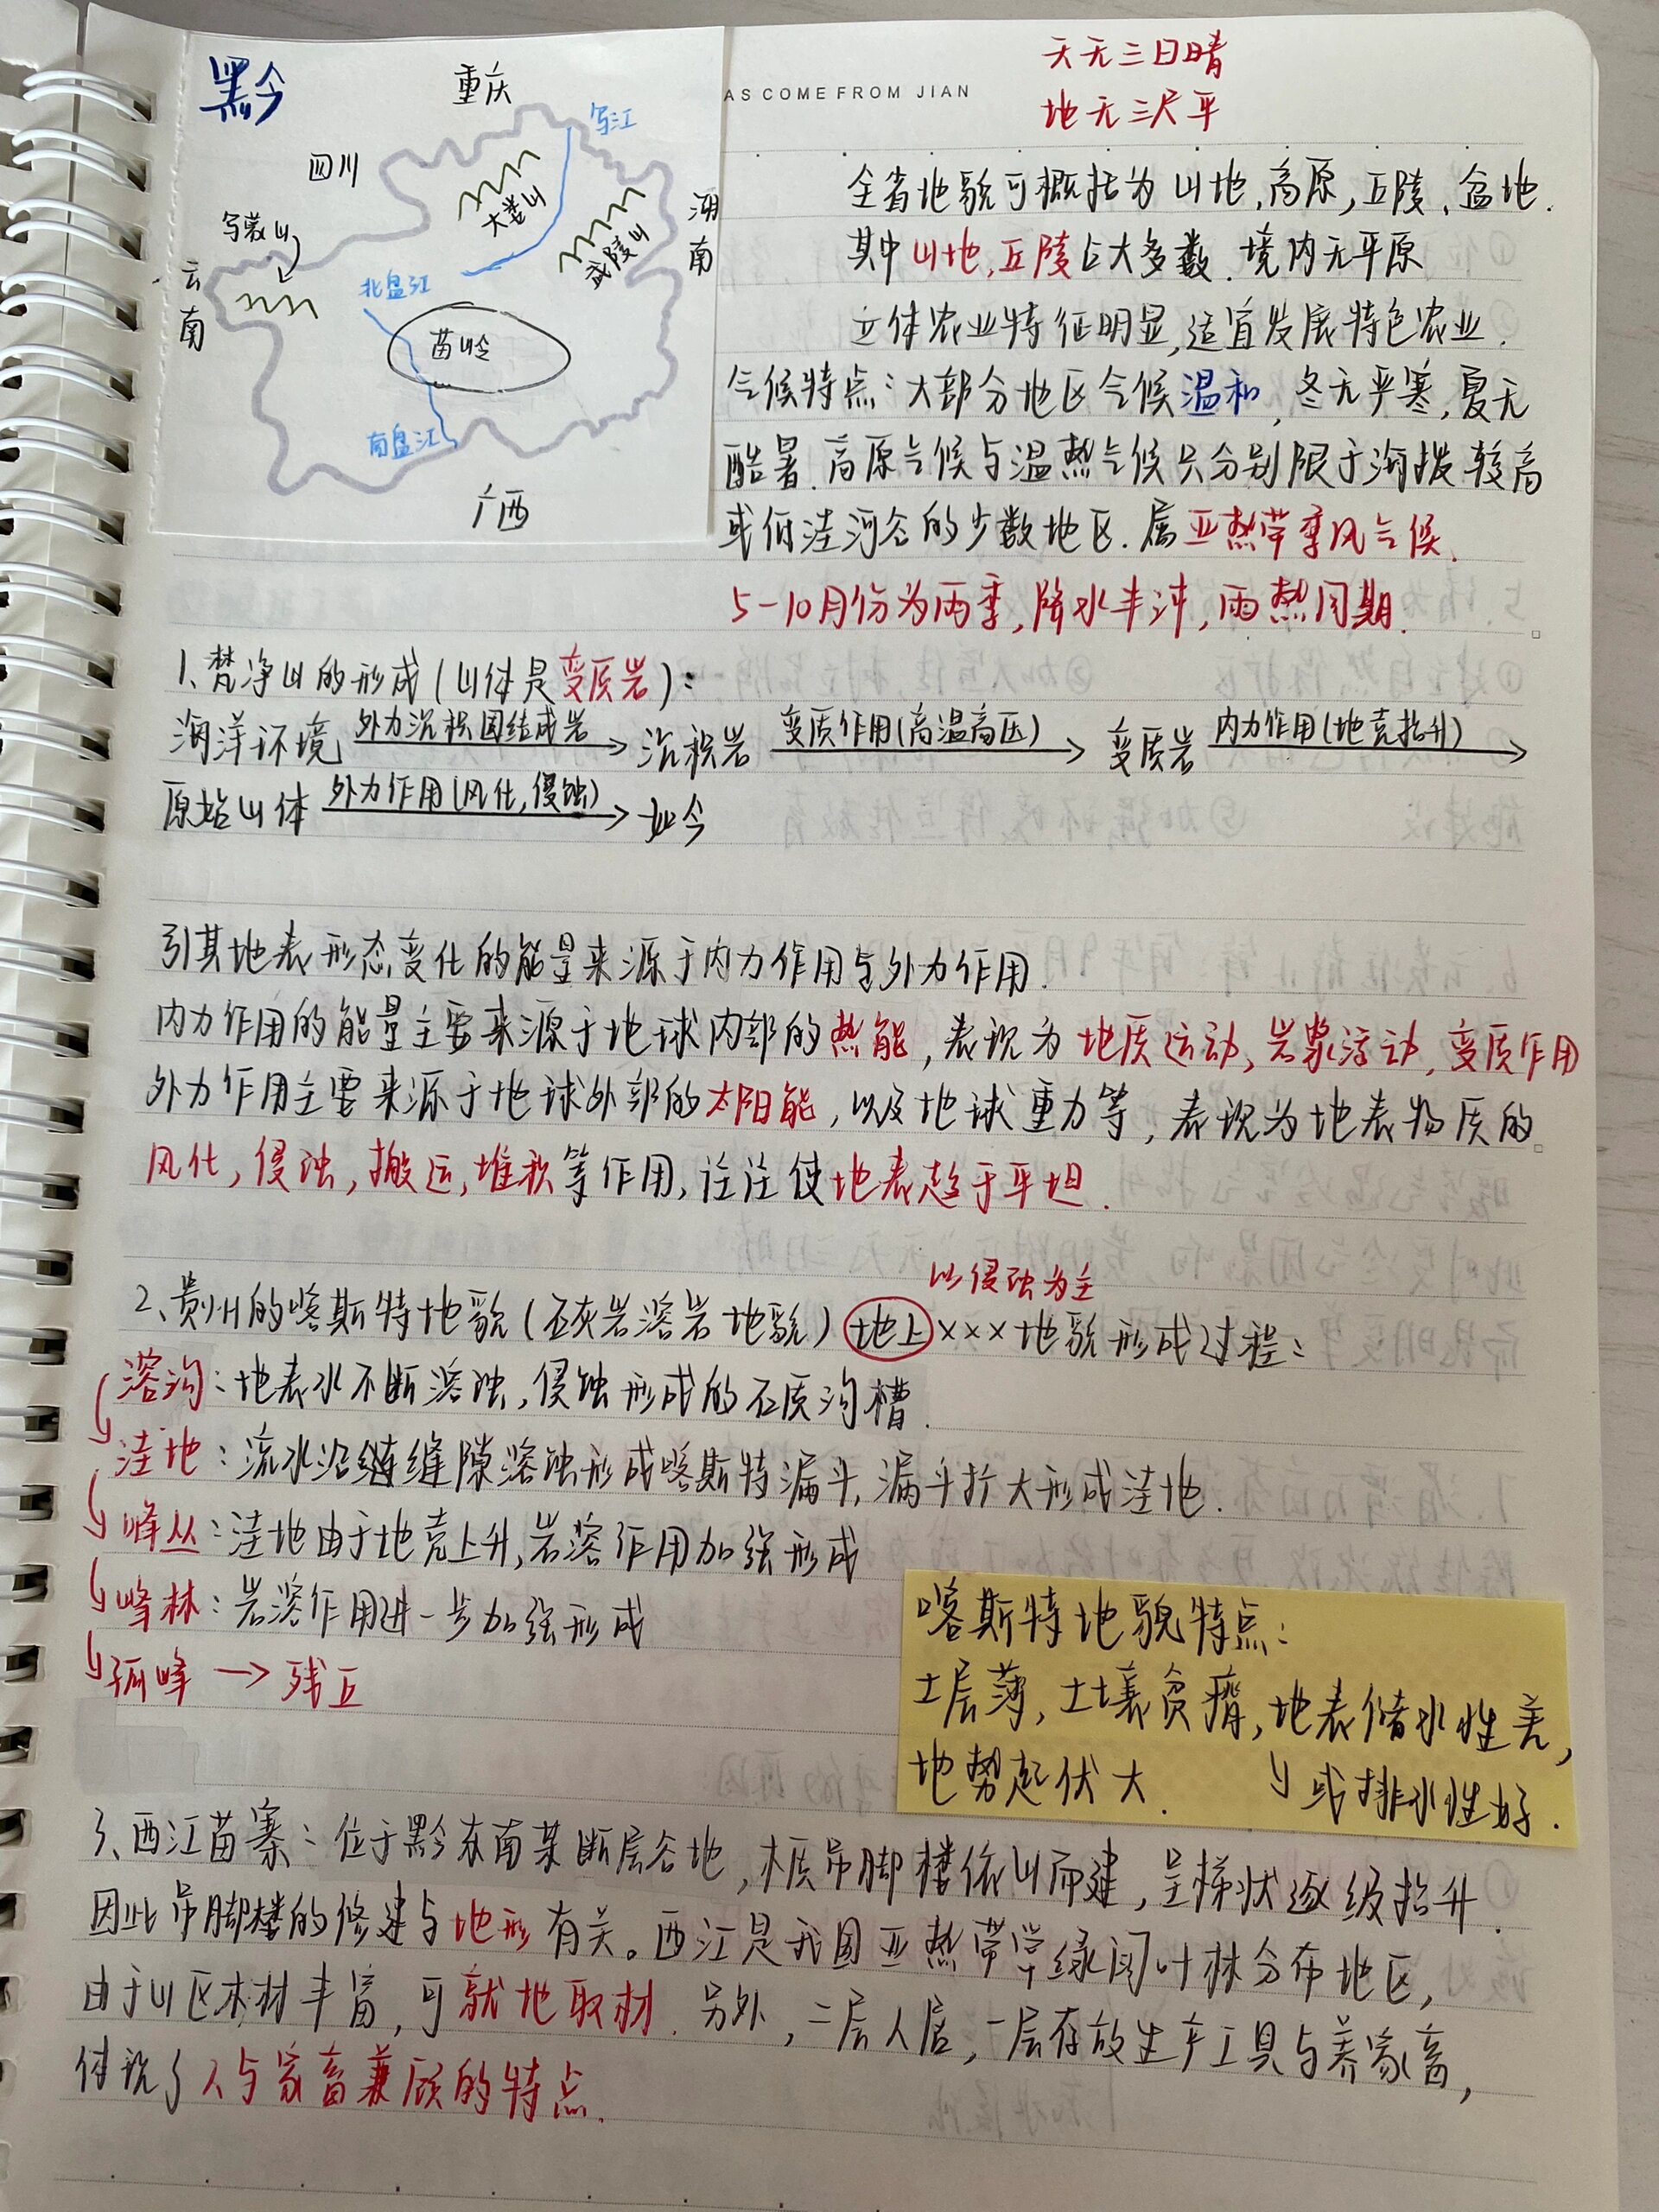 黔
重庆
乌江
四川
大娄山
湖南
武陵山
乌蒙山
云南
北盘江
苗岭
南盘江
广西
AS COME FROM JIAN
天无三日晴
地无三尺平
全省地貌可概括为山地,高原,丘陵、盆地.
其中山地,丘陵占大多数.境内无平原
立体农业特征明显,适宜发展特色农业.
气候特点:大部分地区气候温和,冬无严寒,夏无
酷暑.高原气候与温热气候只分别限于海拔较高
或低洼河谷的少数地区.属亚热带季风气候.
5-10月份为雨季,降水丰沛,雨热同期.
1、梵净山的形成(山体是变质岩):
海洋环境 外力沉积固结成岩→ 沉积岩 变质作用(高温高压)→ 变质岩 内力作用(地壳抬升)→
原始山体 外力作用(风化,侵蚀)→ 如今
引其地表形态变化的能量来源于内力作用与外力作用.
内力作用的能量主要来源于地球内部的热能,表现为地质运动,岩浆活动,变质作用
外力作用主要来源于地球外部的太阳能,以及地球重力等,表现为地表物质的
风化,侵蚀,搬运,堆积等作用,往往使地表趋于平坦.
以侵蚀为主
2、贵州的喀斯特地貌(石灰岩溶岩地貌)地上×××地貌形成过程:
溶沟:地表水不断溶蚀,侵蚀形成的石质沟槽.
洼地:流水沿缝隙溶蚀形成喀斯特漏斗,漏斗扩大形成洼地.
峰丛:洼地由于地壳上升,岩溶作用加强形成
峰林:岩溶作用进一步加强形成
孤峰→残丘
喀斯特地貌特点:
土层薄,土壤贫瘠,地表储水性差,
地势起伏大. ↳或排水性好.
3、西江苗寨:位于黔东南某断层谷地,木质吊脚楼依山而建,呈梯状逐级抬升.
因此吊脚楼的修建与地形有关。西江是我国亚热带常绿阔叶林分布地区,
由于山区木材丰富,可就地取材.另外,二层人居,一层存放生产工具与养家畜,
体现了人与家畜兼顾的特点.